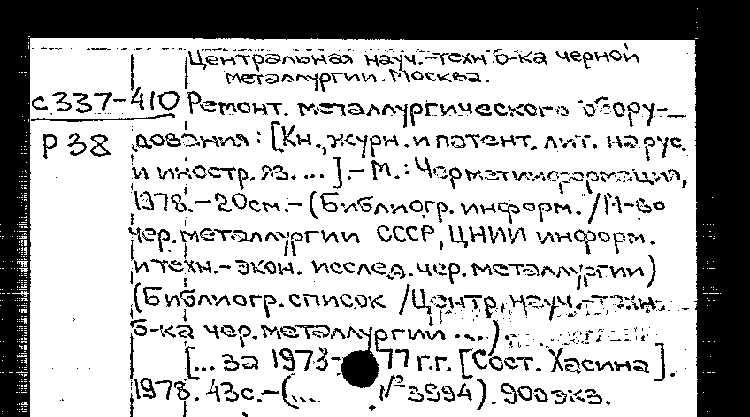 Центральная науч.-техн б-ка черной
металлургии. Москва.
с337-410 Ремонт. металлургического обору-
Р38 дования: [Кн., журн. и патент. лит. на рус.
и иностр. яз. ...].- М.: Черметинформация,
1978.-20см.-(Библиогр. информ. /М-во
чер. металлургии СССР, ЦНИИ информ.
и техн.-экон. исслед. чер. металлургии)
(Библиогр. список /Центр. науч.-техн.
б-ка чер. металлургии ...).
[... за 1973- 77 г.г. [Сост. Хасина].
1978. 43с.-(... №3994). 900экз.